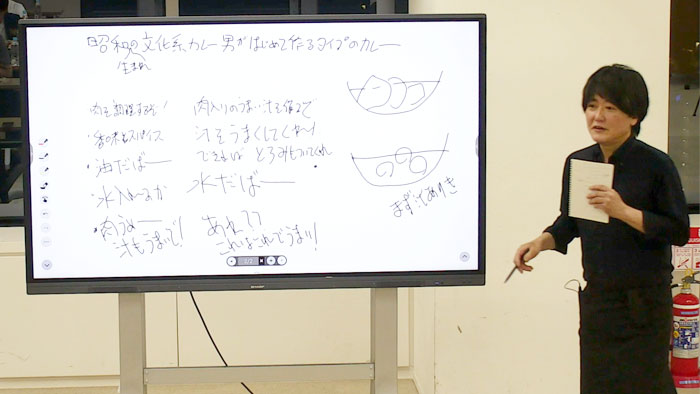 昭和の文化系カレー男がはじめて作るタイプのカレー
生まれ
肉を調理するぞ!
・香味とスパイス
・油だばー
・水入れるか
・肉うめー
汁もうまいで!
肉入りのうまい汁を作って
汁をうまくしてくれ〜!
できれば とろみもついてくれ
水だばー
あれ??
これはこれでうまい!
まず汁ありき
1/2
SHARP